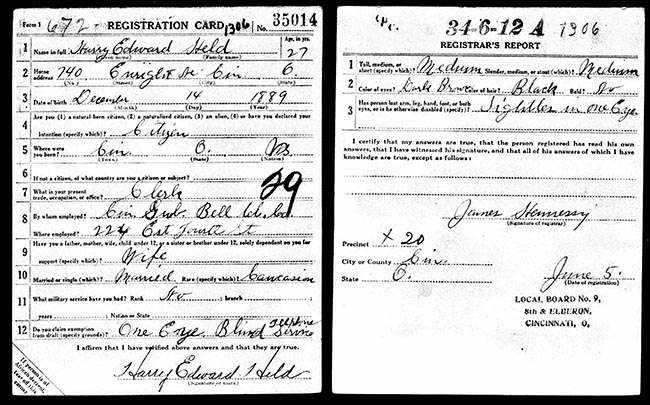 Form 1 672 REGISTRATION CARD 1306 No. 35014
1 Name in full Harry Edward Held Age, in yrs. 27
(Given name) (Family name)
2 Home address 740 Enright Av Cin O.
(No.) (Street) (City) (State)
3 Date of birth December 14 1889
(Month) (Day) (Year)
4 Are you (1) a natural-born citizen, (2) a naturalized citizen, (3) an alien, (4) or have you declared your
intention (specify which)? Citizen
5 Where were you born? Cin O. US
(Town) (State) (Nation)
6 If not a citizen, of what country are you a citizen or subject?
7 What is your present trade, occupation, or office? Clerk 29
8 By whom employed? Cin Sub. Bell Tel. Co
Where employed? 224 East Fourth St
9 Have you a father, mother, wife, child under 12, or a sister or brother under 12, solely dependent on you for
support (specify which)? Wife
10 Married or single (which)? Married Race (specify which)? Caucasian
11 What military service have you had? Rank No ; branch
years ; Nation or State
12 Do you claim exemption from draft (specify grounds)? One Eye Blind Telephone Service
I affirm that I have verified above answers and that they are true.
Harry Edward Held
(Signature or mark)
If person is of African descent, tear off this corner
34-6-12 A 1306
REGISTRAR'S REPORT
1 Tall, medium, or short (specify which)? Medium Slender, medium, or stout (which)? Medium
2 Color of eyes? Dark Brown Color of hair? Black Bald? No
3 Has person lost arm, leg, hand, foot, or both eyes, or is he otherwise disabled (specify)? Sightless in one Eye
I certify that my answers are true, that the person registered has read his own
answers, that I have witnessed his signature, and that all of his answers of which I have
knowledge are true, except as follows:
James Hennessy
(Signature of registrar)
Precinct X 20
City or County Cin.
State O. June 5.
(Date of registration)
LOCAL BOARD No. 9,
8th & ELBERON,
CINCINNATI, O.